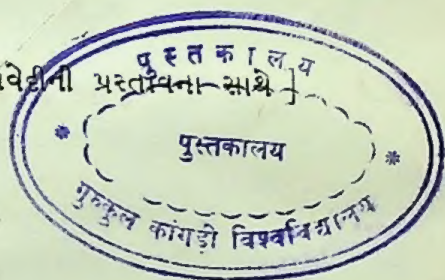 પ્રસ્તાવના સાથે ]
पुस्तकालय
पुस्तकालय
गुरुकुल कांगड़ी विश्वविद्यालय